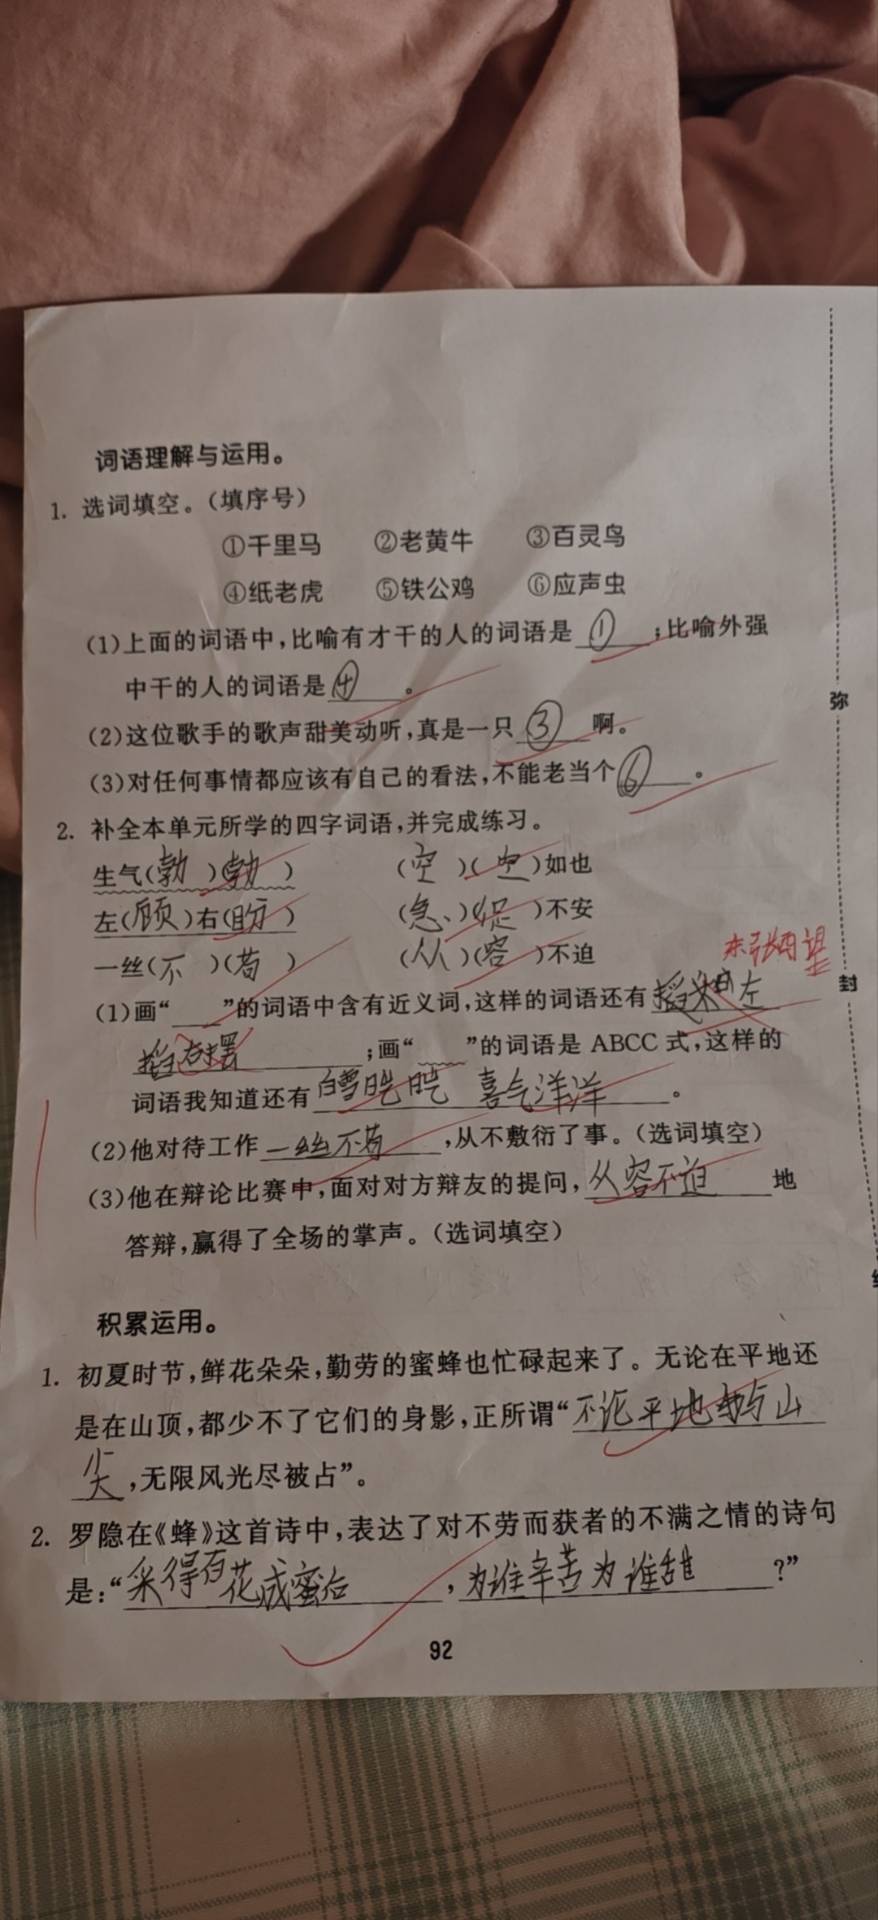 词语理解与运用。
1. 选词填空。(填序号)
①千里马 ②老黄牛 ③百灵鸟
④纸老虎 ⑤铁公鸡 ⑥应声虫
(1)上面的词语中,比喻有才干的人的词语是 ① ;比喻外强
中干的人的词语是 ④ 。
(2)这位歌手的歌声甜美动听,真是一只 ③ 啊。
(3)对任何事情都应该有自己的看法,不能老当个 ⑥ 。
弥
2. 补全本单元所学的四字词语,并完成练习。
生气(勃)(勃) (空)(空)如也
左(顾)右(盼) (急)(促)不安
一丝(不)(苟) (从)(容)不迫
东张西望
封
(1)画“ ”的词语中含有近义词,这样的词语还有 左
右摆 ;画“ ”的词语是 ABCC 式,这样的
词语我知道还有 白雪皑皑 喜气洋洋 。
(2)他对待工作 一丝不苟 ,从不敷衍了事。(选词填空)
(3)他在辩论比赛中,面对对方辩友的提问, 从容不迫 地
答辩,赢得了全场的掌声。(选词填空)
积累运用。
1. 初夏时节,鲜花朵朵,勤劳的蜜蜂也忙碌起来了。无论在平地还
是在山顶,都少不了它们的身影,正所谓“不论平地与山
尖,无限风光尽被占”。
2. 罗隐在《蜂》这首诗中,表达了对不劳而获者的不满之情的诗句
是:“采得百花成蜜后 ,为谁辛苦为谁甜 ?”
92